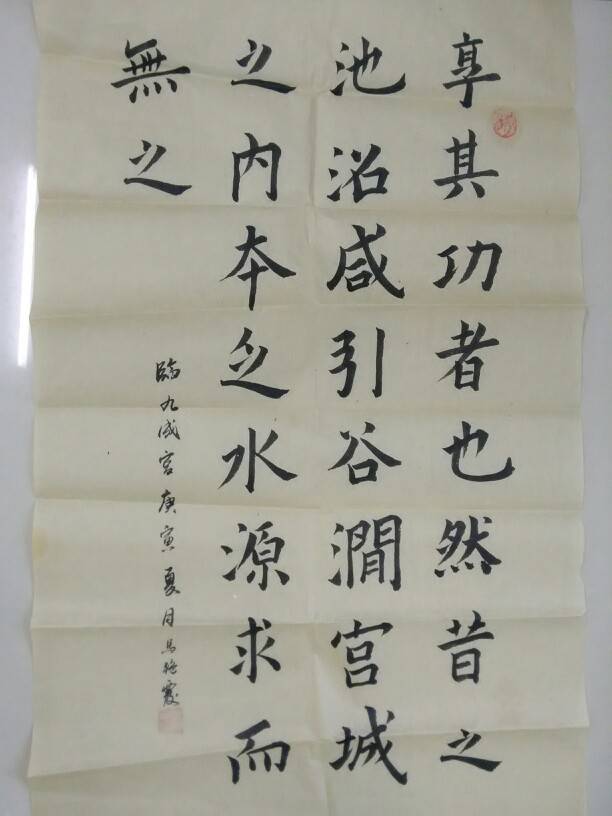 享其功者也然昔之
池沼咸引谷澗宮城
之内本乏水源求而
無之
臨九成宮庚寅夏月馬艳霞